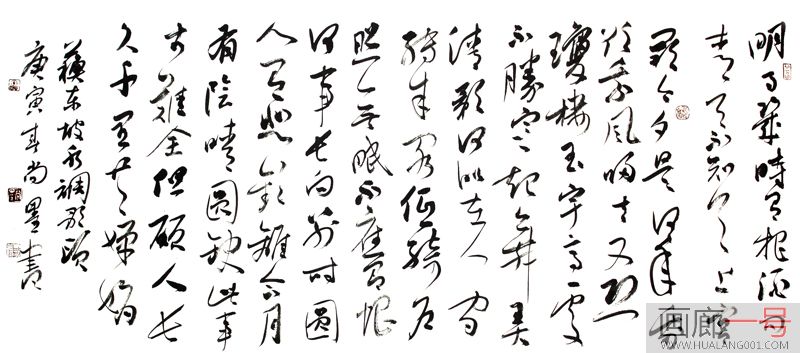 明月幾時有把酒問
青天不知天上宮
闕今夕是何年我
欲乘風歸去又恐
瓊樓玉宇高處
不勝寒起舞弄
清影何似在人間
轉朱閣低綺戶
照無眠不應有恨
何事長向別時圓
人有悲歡離合月
有陰晴圓缺此事
古難全但願人長
久千里共嬋娟
蘇東坡水調歌頭
庚寅年尚墨書
画廊一号
WWW.HUALANG001.COM